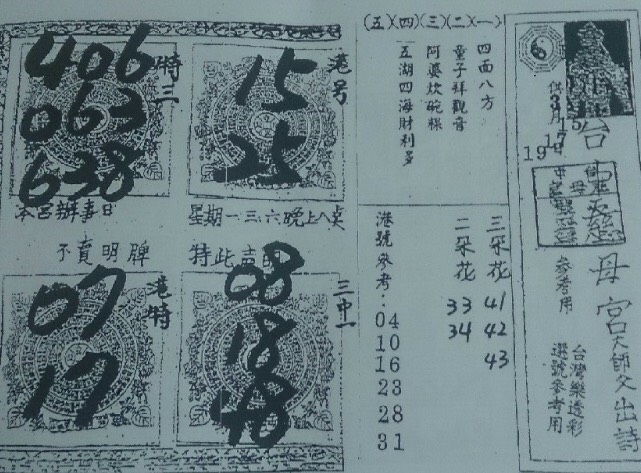 供
3月15
17
19
台靈慈母宮大師父出詩
參考用
台灣樂透彩
選號參考用
(五)(四)(三)(二)(一)
四面八方
童子拜觀音
阿婆炊碗粿
五湖四海財利多
三朵花 41 42 43
二朵花 33 34
港號參考:04 10 16 23 28 31
特三
406
063
638
港号
15
25
本宮辦事日
星期一三、六晚上八點
不賣明牌
特此声明
港特
07
17
三中一
08
18